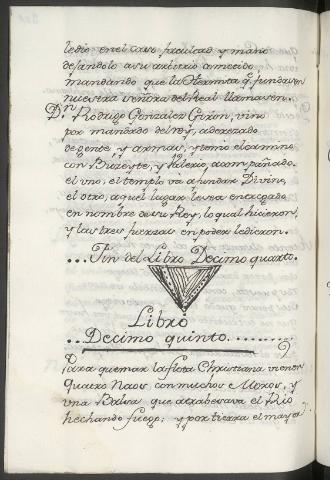 ledio en el caso facultad, y mano
dejandolo a su arbitrio cometido
mandando que la Hermita q.e fundasen
nuestra señora del Real llamasen.
D.n Rodrigo Gonzalez Giron, vino
por mandado del rey, aderezado
de gente, y armas, y tomò el camino
con Buzeyte, y Valerio, acompañado.
el uno, el templo va a fundar Divino,
el otro, aquel lugar lleva encargado
en nombre de su Rey, lo qual hicieron,
y las tres fuerzas en poder le dieron.
... Fin del Libro Decimo quarto.
Libro
... Decimo quinto. ..........
Para quemar la flota Christiana vienen
Quatro Naos, con muchos Moros, y
una Balsa que atrabesava el Rio
hechando fuego; y por tierra el mayor